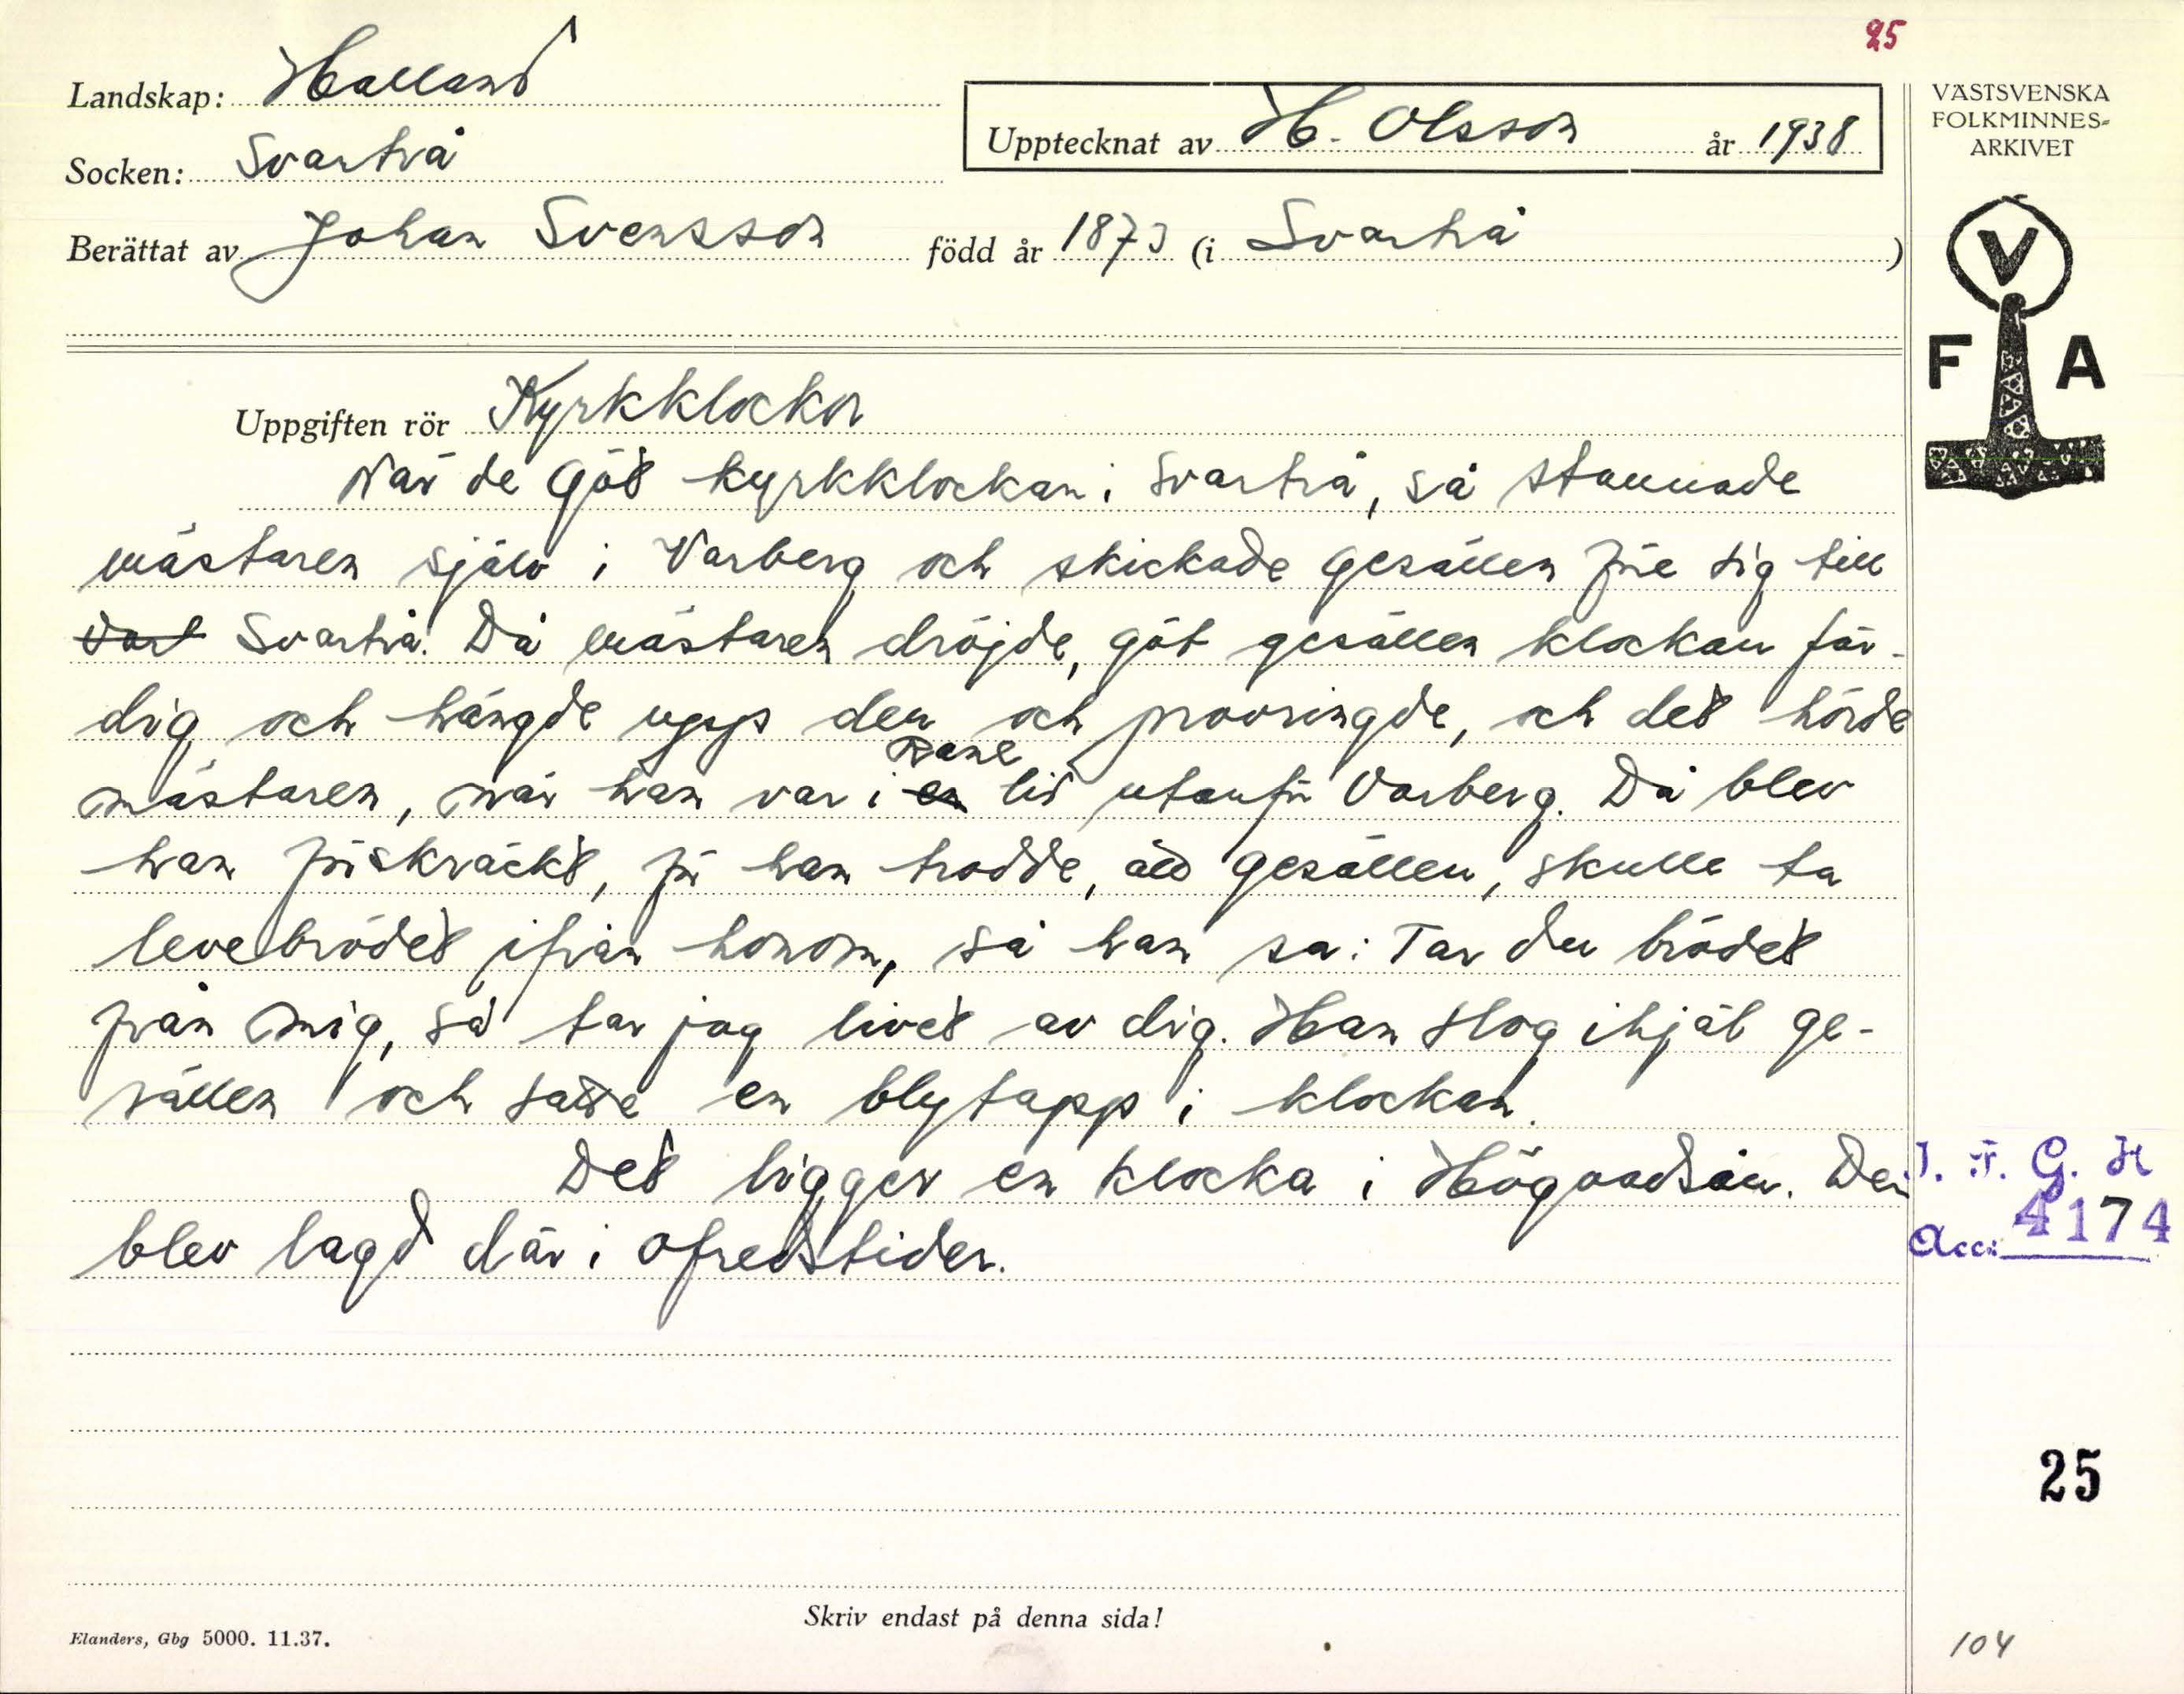 25
Landskap: Halland
Upptecknat av H. Olsson år 1938
Socken: Svartrå
Berättat av Johan Svensson född år 1873 (i Svartrå )
VÄSTSVENSKA
FOLKMINNES-
ARKIVET
V
F A
Uppgiften rör Kyrkklockor
När de göt kyrkklockan i Svartrå, så stannade
mästaren själv i Varberg och skickade gesällen före sig till
Svartrå. Då mästaren dröjde, göt gesällen klockan fär-
dig och hängde upp den och provringde, och det hörde
Rane
mästaren, när han var i en lid utanför Varberg. Då blev
han förskräckt, för han trodde, att gesällen, skulle ta
levebrödet ifrån honom, så han sa: Tar du brödet
från mig, så tar jag livet av dig. Han slog ihjäl ge-
sällen och satte en blytapp i klockan.
Det ligger en klocka i Högvadsån. Den
blev lagd där i ofredstider.
I. F. G. H
Acc: 4174
25
Skriv endast på denna sida!
Elanders, Gbg 5000. 11.37.
104